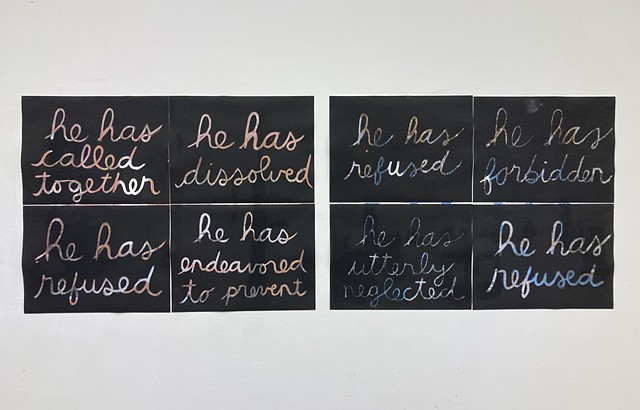 he has
called
together
he has
dissolved
he has
refused
he has
endeavored
to prevent
he has
refused
he has
forbidden
he has
utterly
neglected
he has
refused